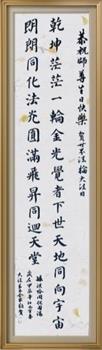 恭祝師尊生日快樂
賀世界法輪大法日
乾坤茫茫一輪金光覺者下世天地同向宇宙
朗朗同化法光圓滿飛昇同迴天堂